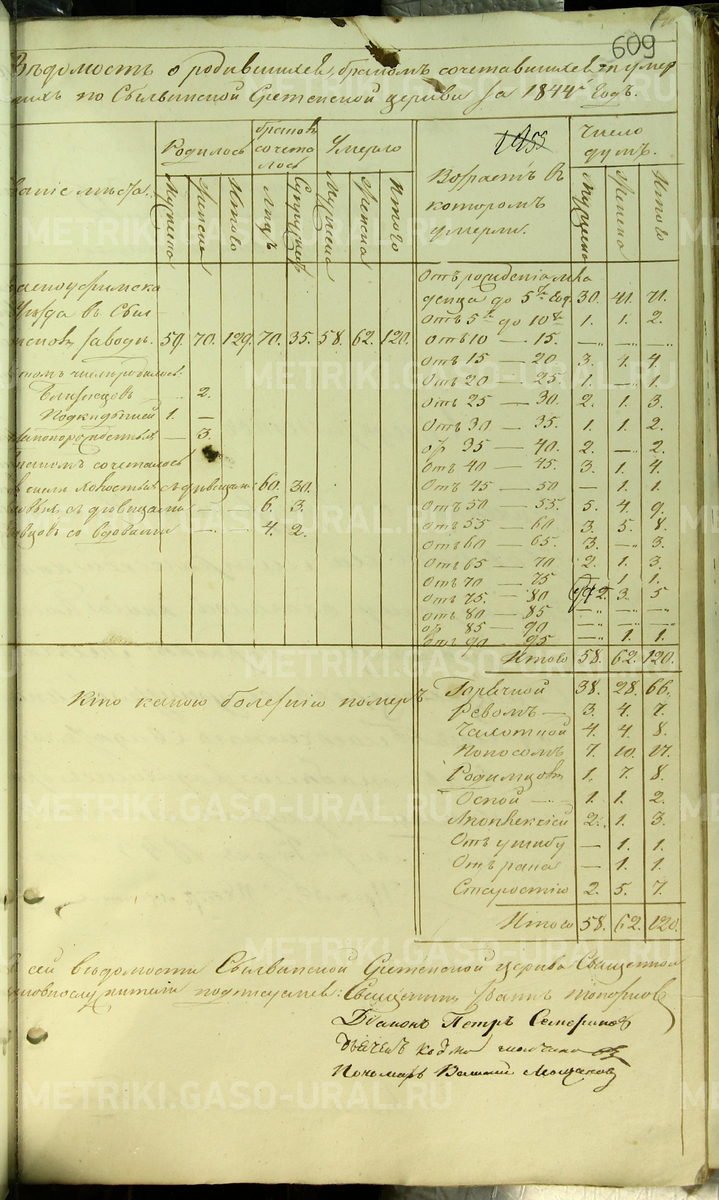 609
Вѣдомость о родившихся, бракомъ сочетавшихся и умер
шихъ по Сылвинской Срѣтенской церкви за 1844й Годъ.
1955
Родилось
браковъ сочета лось
Умерло
Возрастъ въ которомъ умерли.
Число душъ.
Мужеска
Женска
Итого
Лицъ
Супружес
Мужеска
Женска
Итого
Мужеска
Женска
Итого
Уѣзда въ Сыл
заводѣ. 59. 70. 129. 70. 35. 58. 62. 120.
Близнецовъ — 2.
Подкидышей 1. —
— 3.
сочеталось
холостыхъ съ дѣвицами 60. 30.
съ дѣвицами — — 6. 3.
вдовцовъ со вдовами — — 4. 2.
Отъ рожденія мла
денца до 5ти Год. 30. 41. 71.
Отъ 5ти до 10ти 1. 1. 2.
Отъ 10 — 15. — — —
Отъ 15 — 20 3. 1. 4.
Отъ 20 — 25. 1. — 1.
Отъ 25 — 30. 2. 1. 3.
Отъ 30 — 35. 1. 1. 2.
От 35 — 40. 2. — 2.
Отъ 40 — 45. 3. 1. 4.
Отъ 45 — 50 — 1. 1.
Отъ 50 — 55. 5. 4. 9.
Отъ 55 — 60 3. 5. 8.
Отъ 60 — 65. 3. — 3.
Отъ 65 — 70 2. 1. 3.
Отъ 70 — 75 — 1. 1.
Отъ 75. — 80 2. 3. 5
Отъ 80 — 85 — — —
От 85 — 90 — — —
Отъ 90 — 95 — 1. 1.
Итого 58. 62. 120.
Кто какою болезнію померъ
Горячкой 38. 28. 66.
Ревомъ — 3. 4. 7.
Чахоткой 4. 4. 8.
Поносомъ 7. 10. 17.
Родимцовъ 1. 7. 8.
Оспой — 1. 1. 2.
2. 1. 3.
Отъ ушибу — 1. 1.
Отъ рака — 1. 1.
Старостію 2. 5. 7.
Итого 58. 62. 120.
сей вѣдомости Сылвинской Срѣтенской церкви Священно
церковнослужители подписуемся: Священникъ Іоаннъ Топорковъ
Діаконъ Петръ Семериковъ
Дьячекъ
Пономарь Василій
METRIKI.GASO-URAL.RU